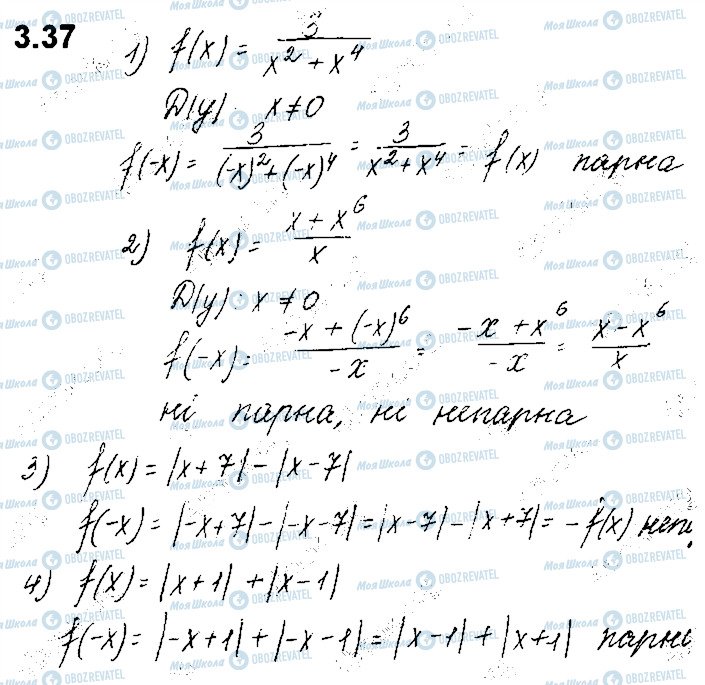 3.37
1) f(x) = 3/(x² + x⁴)
D(y): x ≠ 0
f(-x) = 3/((-x)² + (-x)⁴) = 3/(x² + x⁴) = f(x) парна
2) f(x) = (x + x⁶)/x
D(y): x ≠ 0
f(-x) = (-x + (-x)⁶)/(-x) = (-x + x⁶)/(-x) = (x - x⁶)/x
ні парна, ні непарна
3) f(x) = |x + 7| - |x - 7|
f(-x) = |-x + 7| - |-x - 7| = |x - 7| - |x + 7| = - f(x)
4) f(x) = |x + 1| + |x - 1|
f(-x) = |-x + 1| + |-x - 1| = |x - 1| + |x + 1|